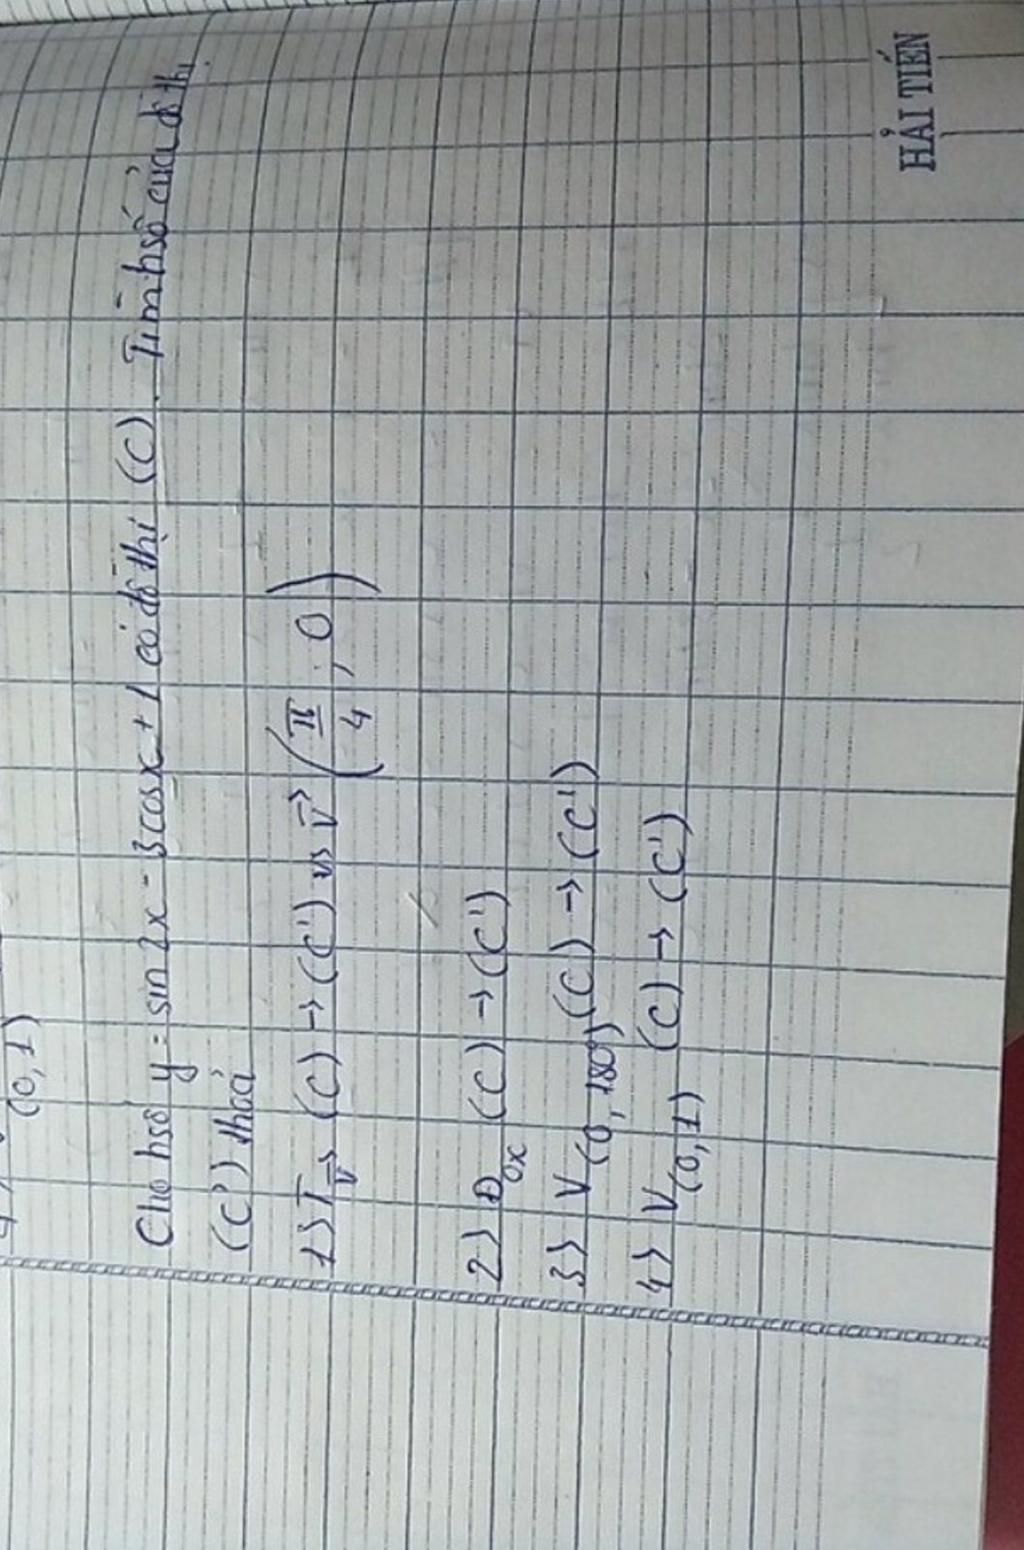 (0,1)
Cho hsố y = sin 2x - 3cosx + 1 có đồ thị (C). Tìm hsố của đồ thị
(C') thoả
1> T_v⃗ (C) → (C') vs v⃗ (π/4, 0)
2> Đ_Ox (C) → (C')
3> V_(0, 180°) (C) → (C')
4> V_(0,1) (C) → (C')
HẢI TIẾN